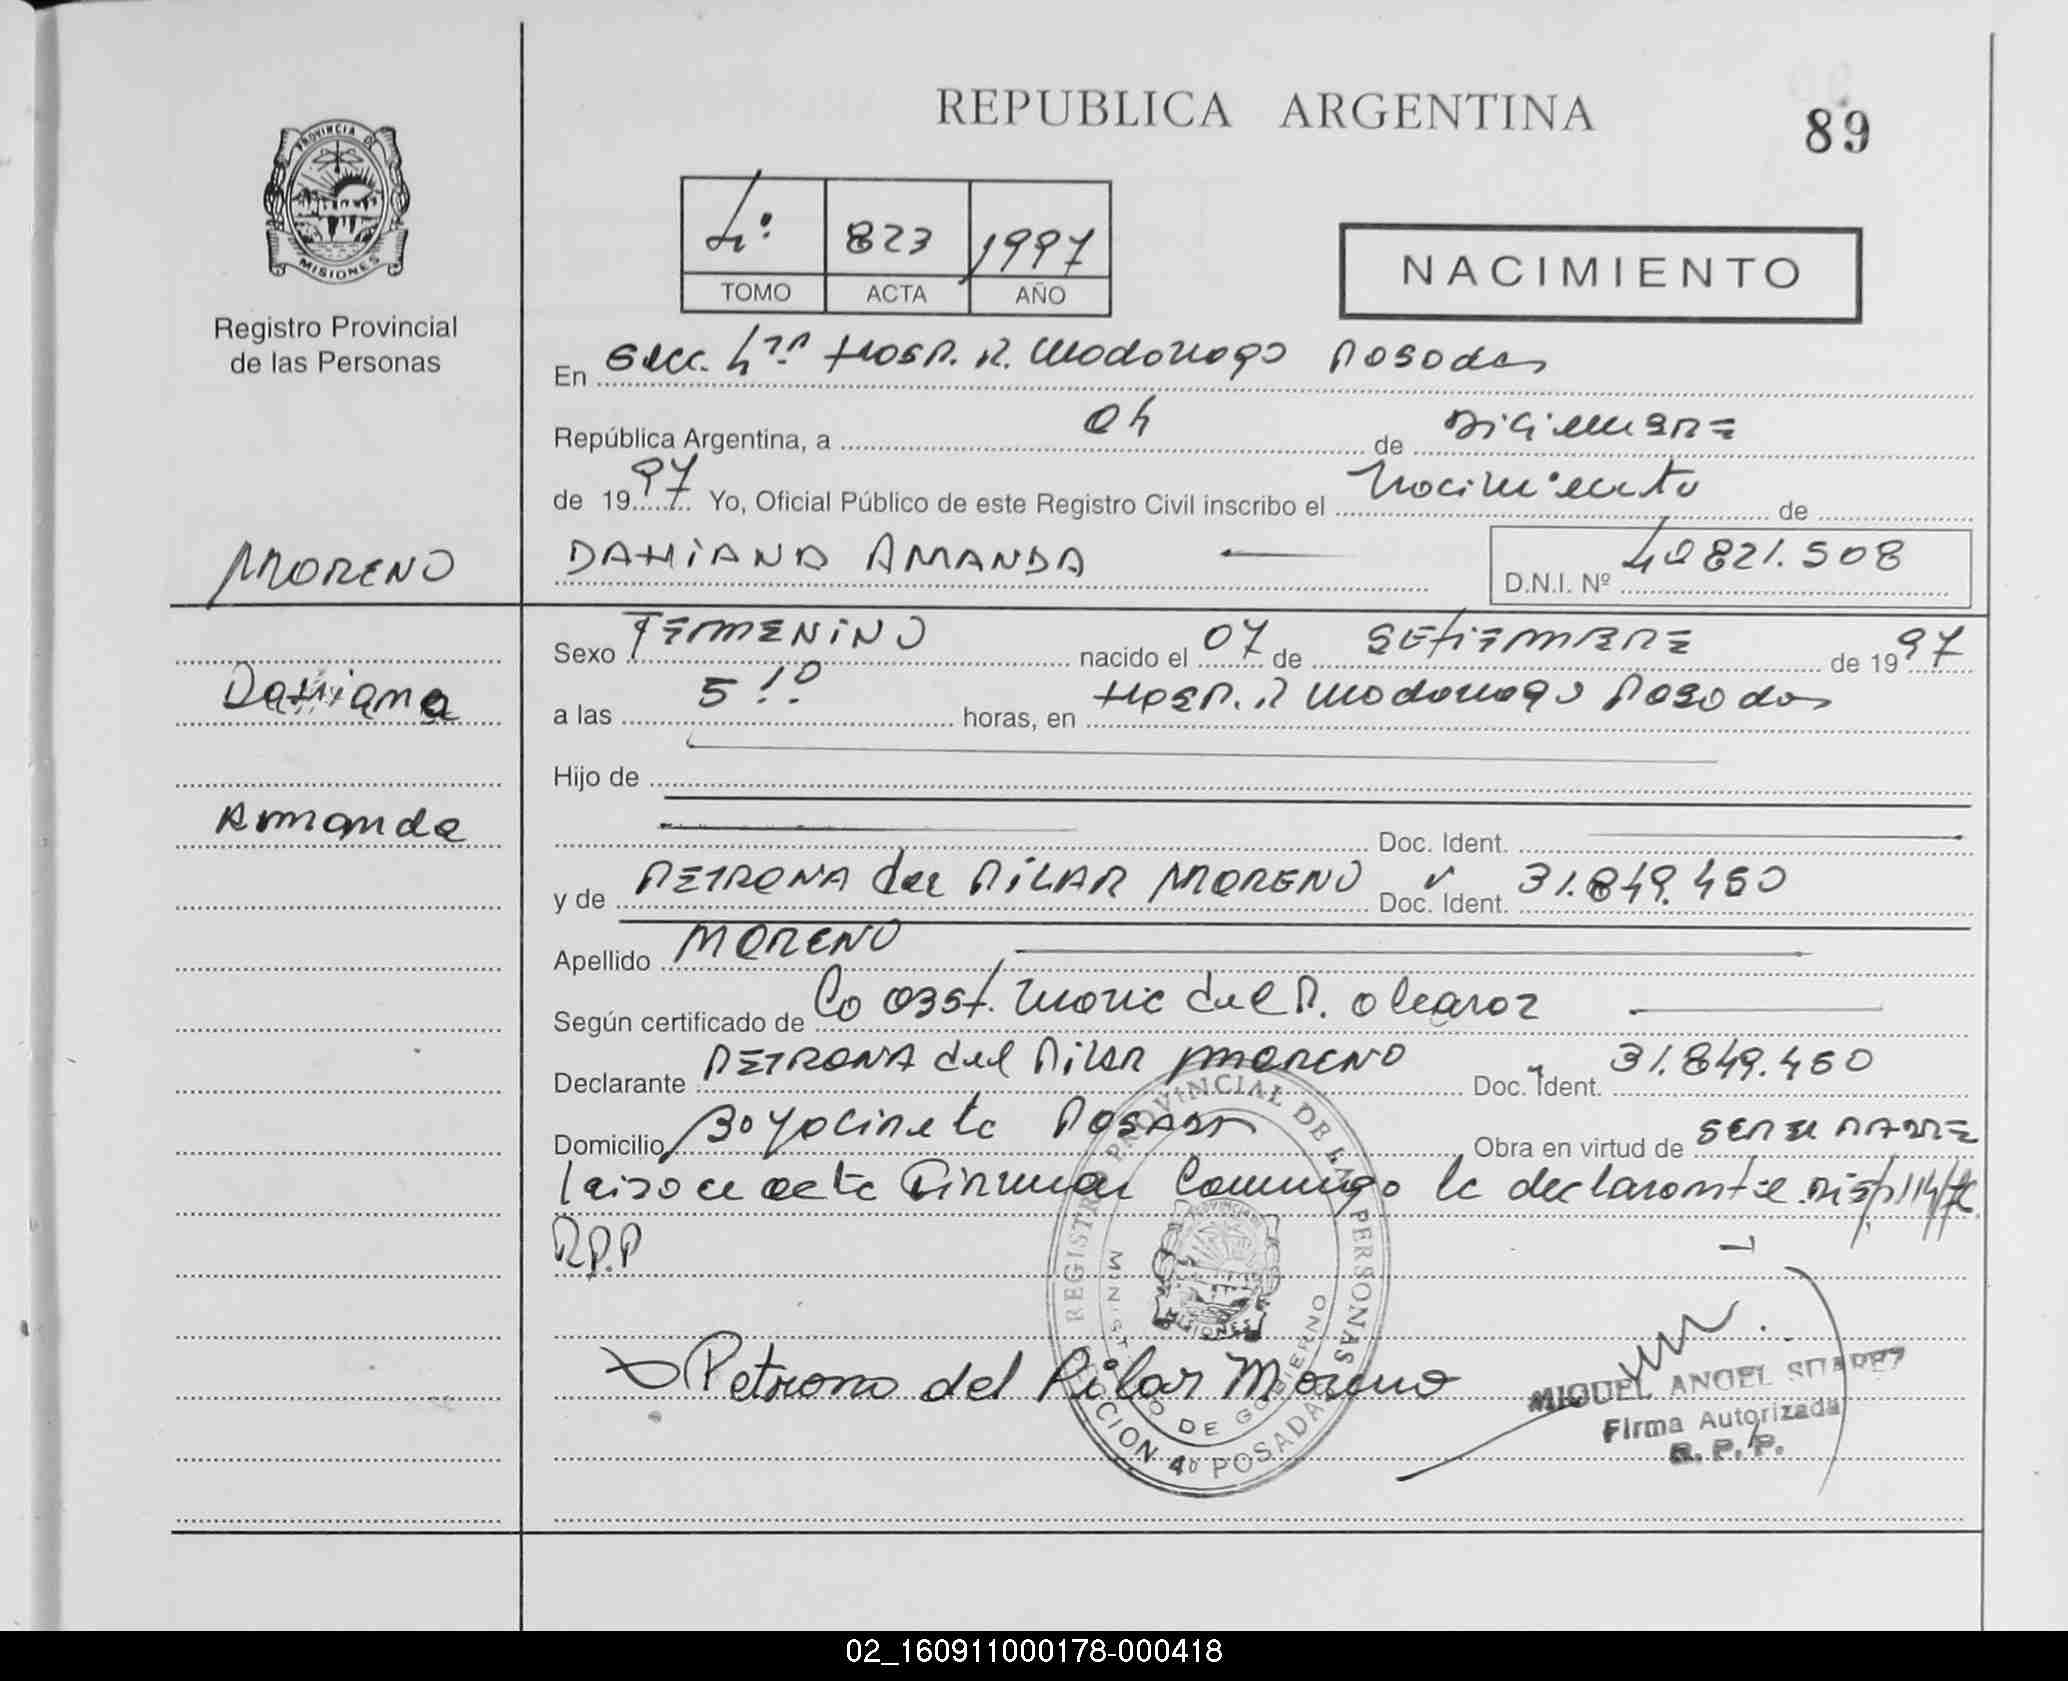 REPUBLICA ARGENTINA
89
PROVINCIA DE
MISIONES
Registro Provincial
de las Personas
4º 823 1997
TOMO ACTA AÑO
NACIMIENTO
En Secc. 4ta Hosp. R. Madariaga Posadas
República Argentina, a 04 de Diciembre
de 1997 Yo, Oficial Público de este Registro Civil inscribo el Nacimiento de
MORENO
DAMIANA AMANDA
D.N.I. Nº 40821.508
Sexo FEMENINO nacido el 07 de SETIEMBRE de 1997
Damiana
a las 5 10 horas, en Hosp. R Madariaga Posadas
Hijo de
Amanda
Doc. Ident.
y de PETRONA del PILAR MORENO Doc. Ident. 31.849.450
Apellido MORENO
Según certificado de Obst. Maria del P.
Declarante PETRONA del Pilar MORENO Doc. Ident. 31.849.450
Domicilio Bº Yacireta POSADAS Obra en virtud de SER SU MADRE
Leida el acta Firman Conmigo la declarante
R.P.P
Petrona del Pilar Moreno
REGISTRO PROVINCIAL DE LAS PERSONAS
MINIST. DE GOBIERNO
SECCION 4º POSADAS
MIGUEL ANGEL SUAREZ
Firma Autorizada
R. P. P.
02_160911000178-000418